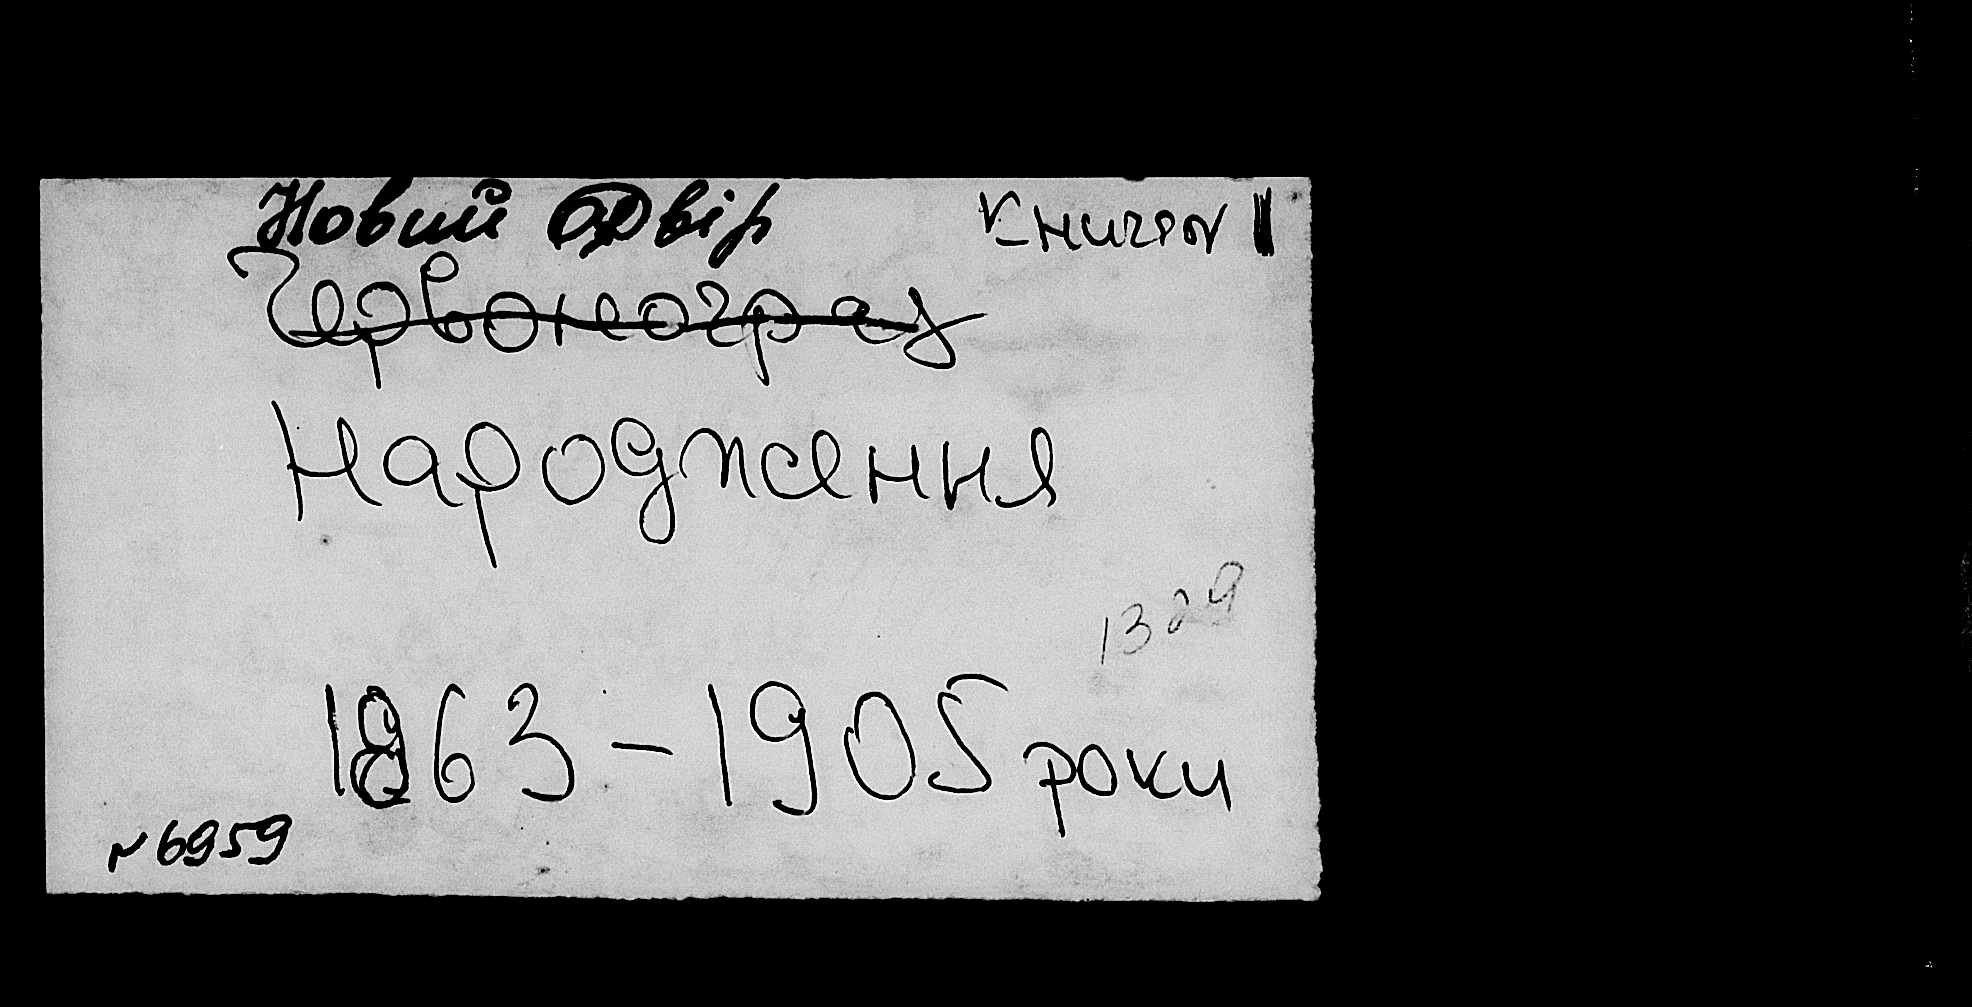 Новий Двір Книга № 1
Червоноград
Народження
1329
1863 – 1905 роки
№ 6959